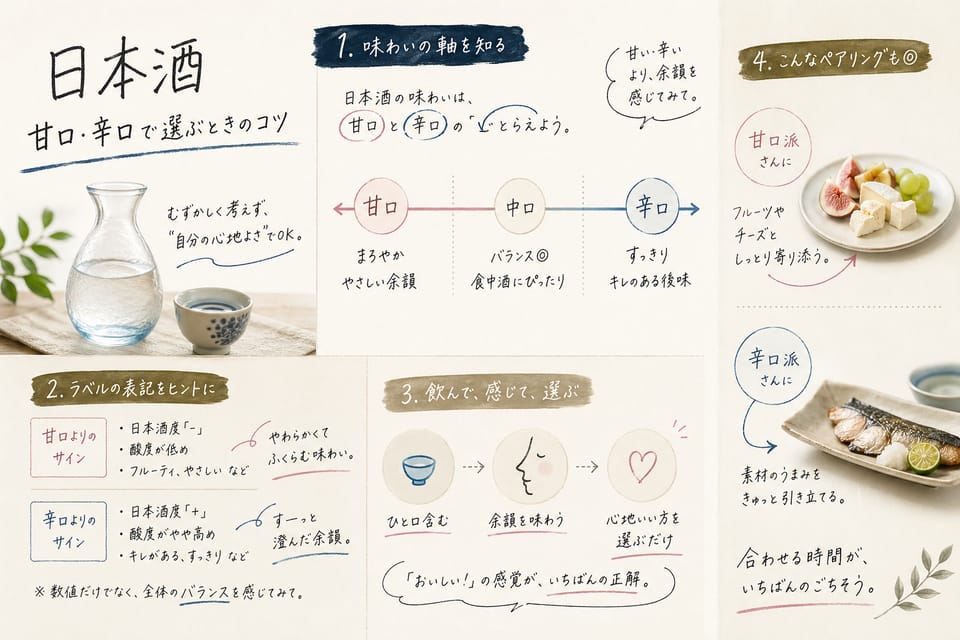 日本酒
甘口・辛口で選ぶときのコツ
むずかしく考えず、
"自分の心地よさ"でOK。
1. 味わいの軸を知る
日本酒の味わいは、
甘口と辛口の「 とらえよう。
甘い・辛い
より、余韻を
感じてみて。
甘口
まろやか
やさしい余韻
中口
バランス◎
食中酒にぴったり
辛口
すっきり
キレのある後味
2. ラベルの表記をヒントに
甘口よりの
サイン
・日本酒度「−」
・酸度が低め
・フルーティ、やさしい など
やわらかくて
ふくらむ味わい。
辛口よりの
サイン
・日本酒度「+」
・酸度がやや高め
・キレがある、すっきり など
すーっと
澄んだ余韻。
※ 数値だけでなく、全体のバランスを感じてみて。
3. 飲んで、感じて、選ぶ
ひと口含む
余韻を味わう
心地いい方を
選ぶだけ
「おいしい!」の感覚が、いちばんの正解。
4. こんなペアリングも◎
甘口派
さんに
フルーツや
チーズと
しっとり寄り添う。
辛口派
さんに
素材のうまみを
きゅっと引き立てる。
合わせる時間が、
いちばんのごちそう。